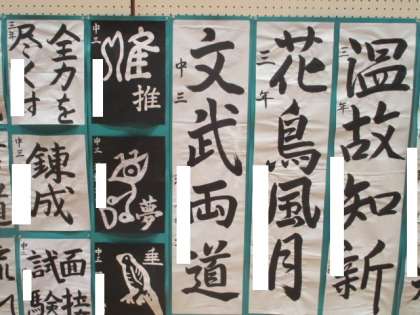 温故知新
三年
花鳥風月
三年
文武両道
中三
推
中三
夢
中三
垂
中三
全力を
尽くす
三年
錬成
中三
面接
試験
中三
道
流